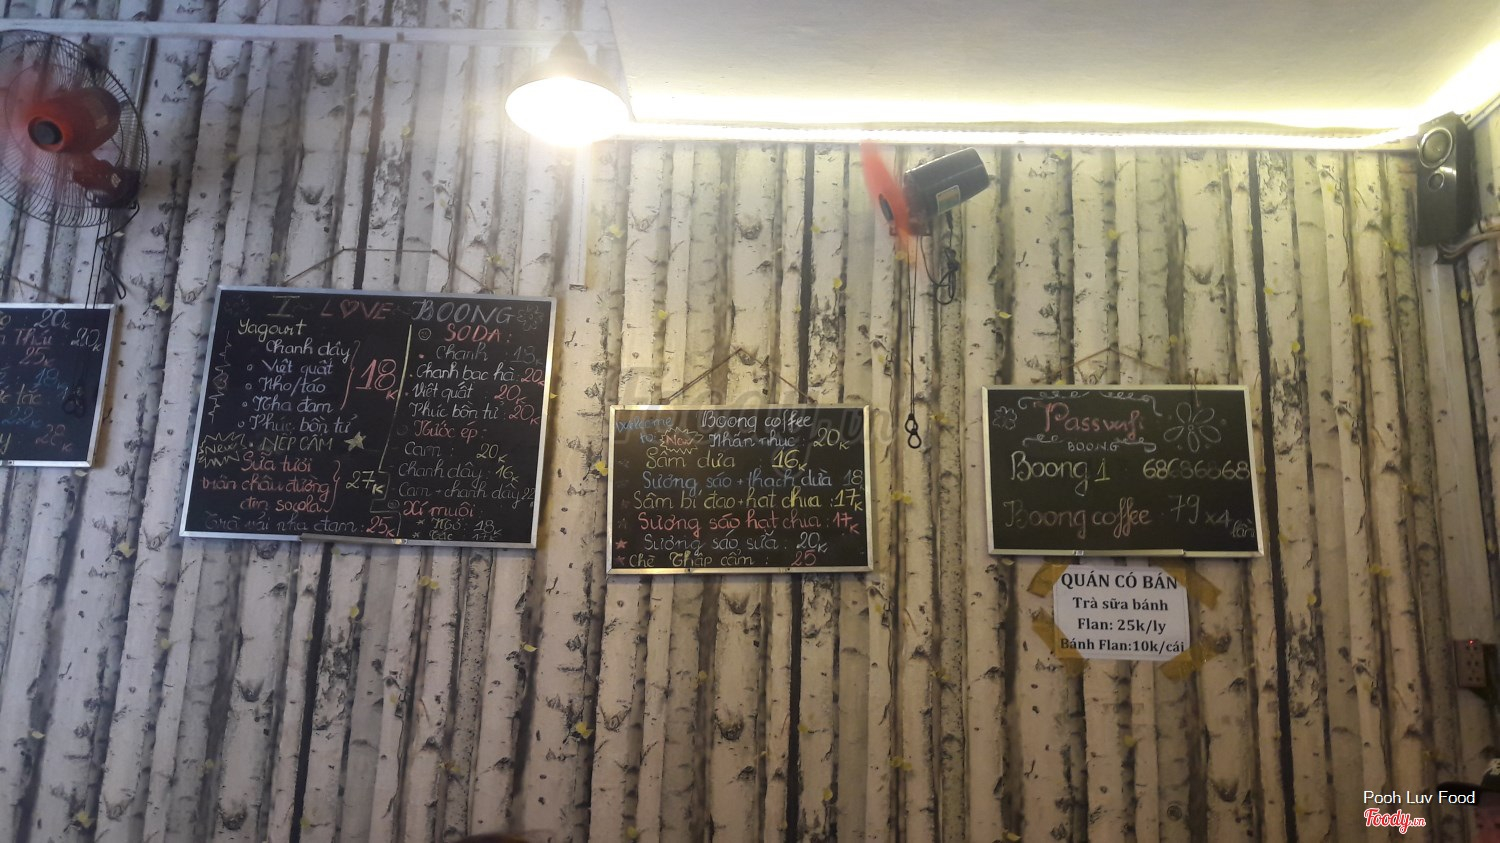 20K
Thêu 20K
25
18
22K
28K
I L♡VE BOONG
Yagourt
Chanh dây
Việt quất
Nho/táo
Nha đam
Phúc bồn tử
18K
New NẾP CẨM
Sữa tươi
trân châu đường
đen socola
27K
Trà vải nha đam: 25K
SODA:
Chanh: 18K
Chanh bạc hà: 20K
Việt quất: 20K
Phúc bồn tử: 20K
Nước ép:
Cam: 20K
Chanh dây: 16K
Cam + chanh dây 22
Xí muội
Nho: 18K
Tắc: 17K
Boong coffee
New Nhãn nhục: 20K
Sâm dứa 16K
Sương sáo + thạch dừa 18K
Sâm bí đao + hạt chia: 17K
Sương sáo hạt chia: 17K
Sương sáo sữa: 20K
Chè Thập cẩm: 25
Passwifi
BOONG
Boong 1 68686868
Boong coffee: 79 x 4 lần
QUÁN CÓ BÁN
Trà sữa bánh
Flan: 25k/ly
Bánh Flan:10k/cái
Pooh Luv Food
Foody.vn